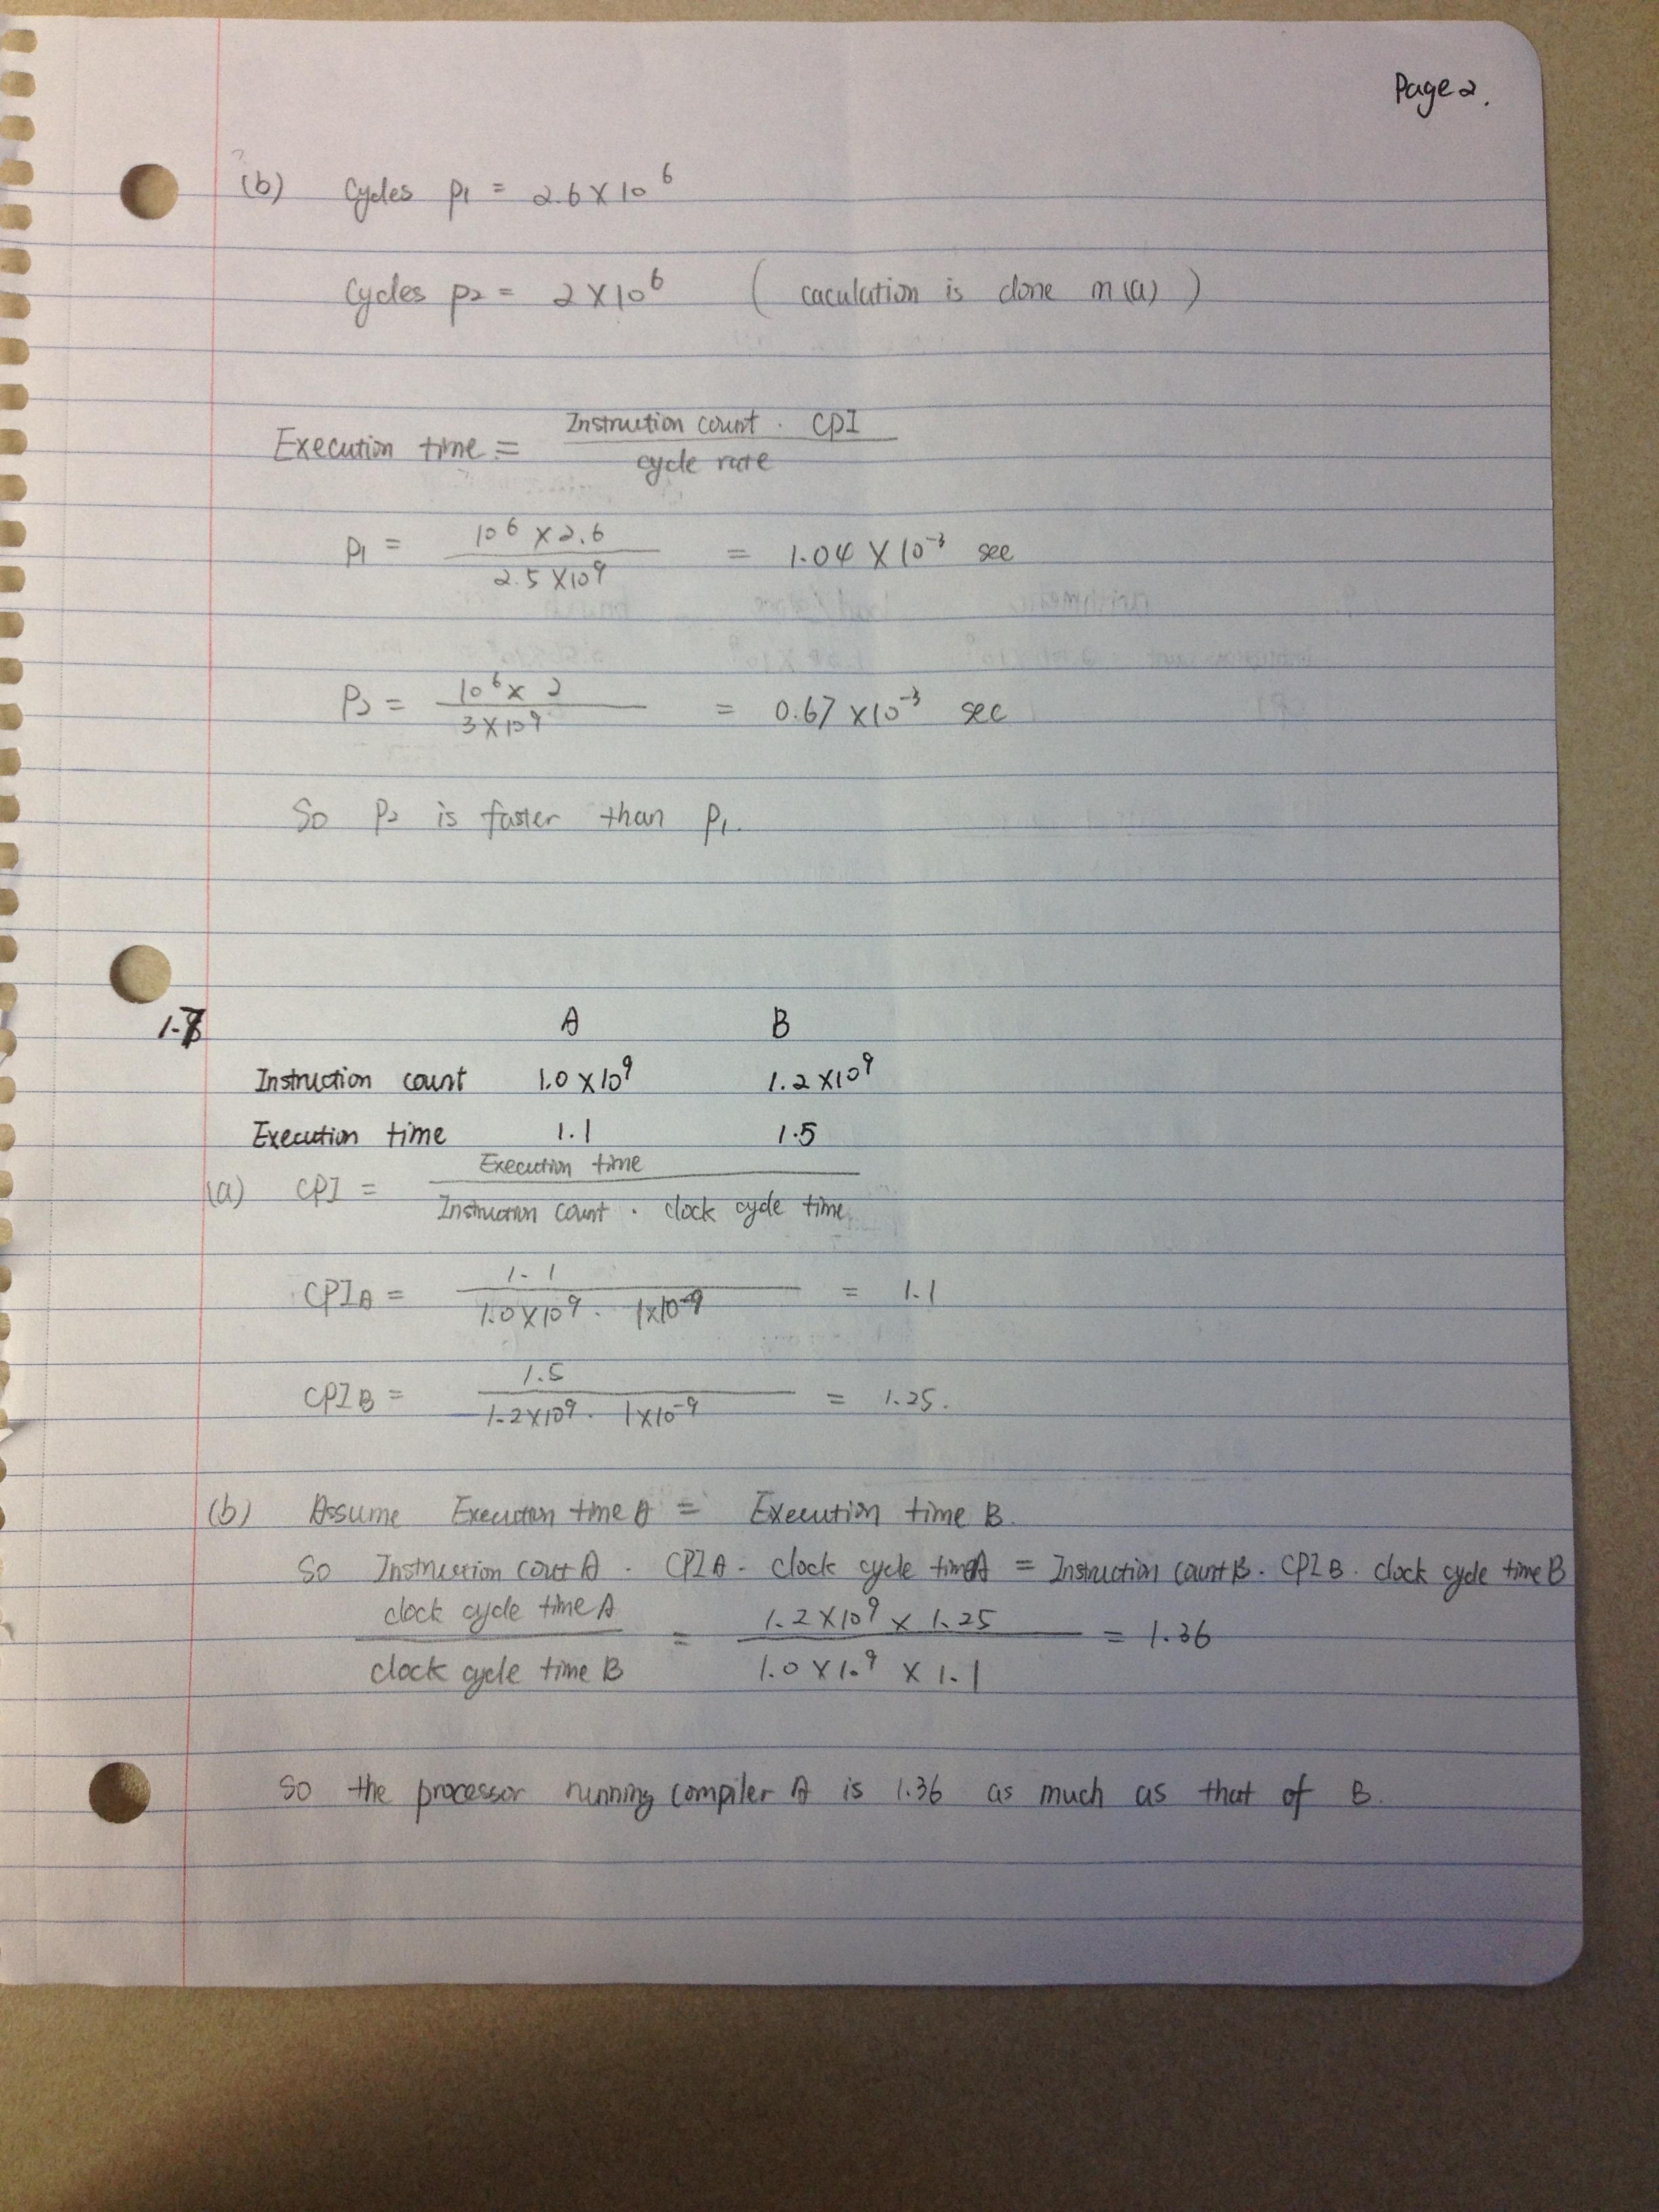 Page 2.
(b) Cycles P1 = 2.6 × 10^6
Cycles P2 = 2 × 10^6 ( caculation is done in (a) )
Execution time = Instruction count · CPI / cycle rate
P1 = 10^6 × 2.6 / 2.5 × 10^9 = 1.04 × 10^-3 sec
P2 = 10^6 × 2 / 3 × 10^9 = 0.67 × 10^-3 sec
So P2 is faster than P1.
1.7 A B
Instruction count 1.0 × 10^9 1.2 × 10^9
Execution time 1.1 1.5
(a) CPI = Execution time / Instruction count · clock cycle time
CPI A = 1.1 / 1.0 × 10^9 · 1 × 10^-9 = 1.1
CPI B = 1.5 / 1.2 × 10^9 · 1 × 10^-9 = 1.25.
(b) Assume Execution time A = Execution time B.
So Instruction count A · CPI A · clock cycle time A = Instruction count B · CPI B · clock cycle time B
clock cycle time A / clock cycle time B = 1.2 × 10^9 × 1.25 / 1.0 × 10^9 × 1.1 = 1.36
So the processor running compiler A is 1.36 as much as that of B.